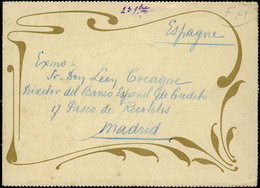 23 9bre
Espagne
Exmo =
Sr. Don Leon Cocagne
Director del Banco Español de Credito
17 Paseo de Recoletos
Madrid